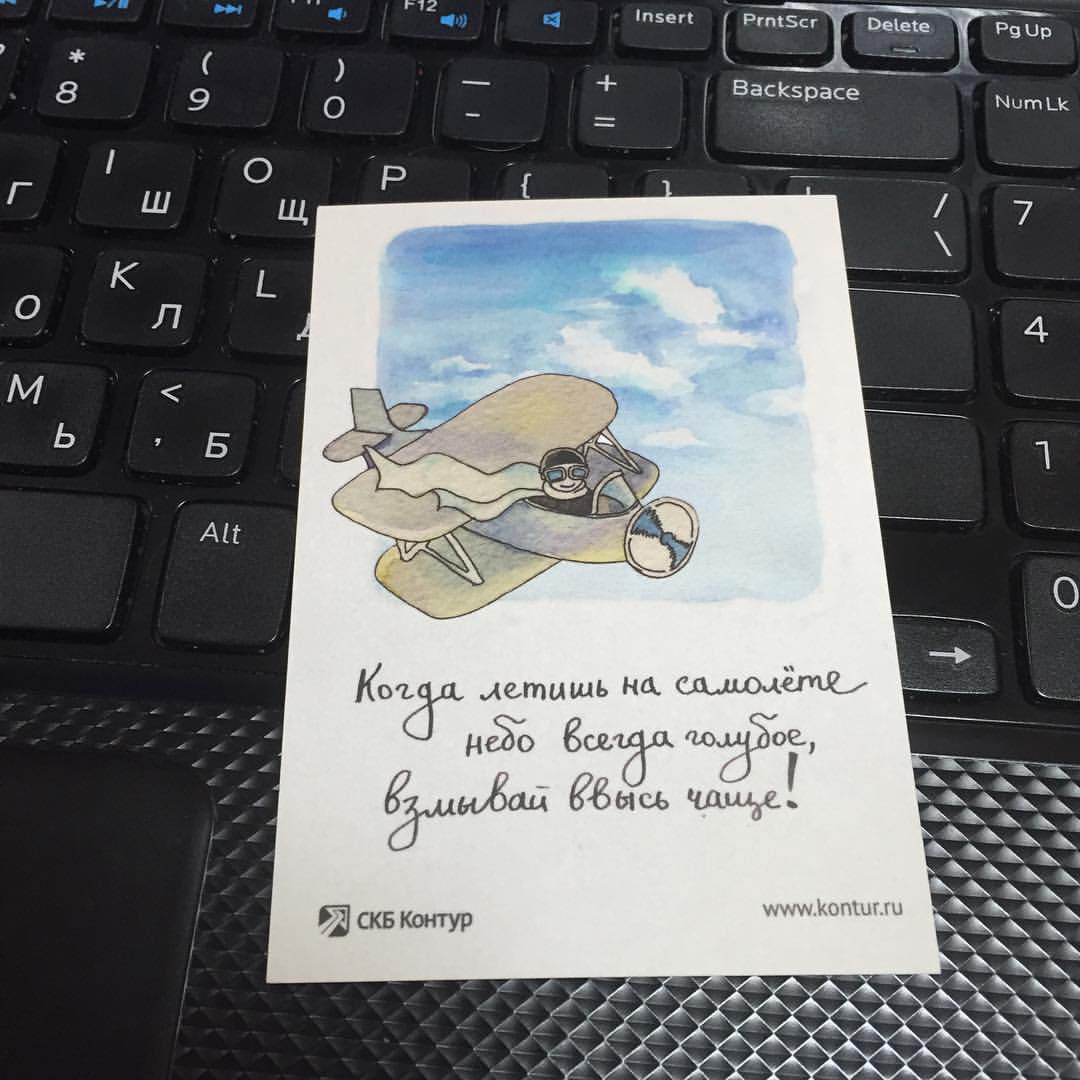 F12
Insert
PrntScr
Delete
Pg Up
* 8
( 9
) 0
— -
+ =
Backspace
Num Lk
Г
I Ш
O Щ
P
{
}
/ \
7
О
K Л
L
4
M Ь
< , Б
1
Alt
→
0
Когда летишь на самолёте
небо всегда голубое,
взмывай ввысь чаще!
СКБ Контур
www.kontur.ru